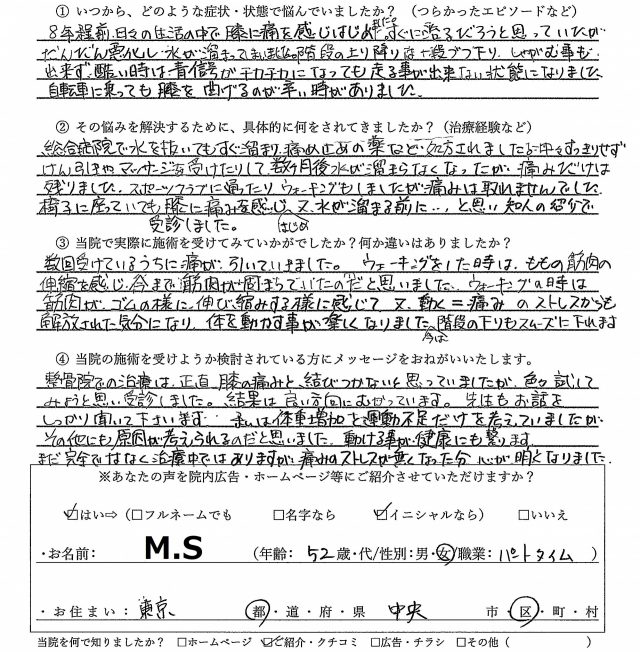 ① いつから、どのような症状・状態で悩んでいましたか？（つらかったエピソードなど）
8年程前、日々の生活の中で膝に痛を感じはじめすぐに治るだろうと思っていたが
だんだん悪化し水が溜まってしまいました。階段の上り降りは一段ずつ下り、しゃがむ事も
出来ず、酷い時は青信号がチカチカになっても走る事が出来ない状態になりました
自転車に乗っても膝を曲げるのが辛い時がありました。
② その悩みを解決するために、具体的に何をされてきましたか？（治療経験など）
総合病院で水を抜いてもすぐ溜まり、痛め止めの薬など処方されましたが
けん引きやマッサージを受けたりして数ヶ月後水が溜まらなくなったが、痛みだけは
残りました。スポーツクラブに通ったりウォーキングもしましたが痛みは取れませんでした
椅子に座っていても膝に痛みを感じはじめ、又、水が溜まる前に…と思い知人の紹介で
受診しました。
③ 当院で実際に施術を受けてみていかがでしたか？何か違いはありましたか？
数回受けているうちに痛が、引いていきました。ウォーキングをした時は、ももの筋肉の
伸縮を感じ、今まで筋肉が固まっていたのだと思いました。ウォーキングの時は
筋肉が、ゴムの様に、伸び縮みする様に感じて、又、動く＝痛みのストレスからも
解放された気分になり、体を動かす事が楽しくなりました、今は階段の下りもスムーズに下れます
④ 当院の施術を受けようか検討されている方にメッセージをおねがいいたします。
整骨院での治療は、正直、膝の痛みと結びつかないと思っていましたが、色々試して
みようと思い受診しました。結果は良い方向にむかっています。先生もお話を
しっかり聞いて下さいます。私は体重増加と運動不足だけを考えていましたが
その他にも原因が考えられるのだと思いました。動ける事が健康にも繋ります。
まだ完全ではなく治療中ではありますが、痛みのストレスが無くなった分 心が明るくなりました。
※あなたの声を院内広告・ホームページ等にご紹介させていただけますか？
☑はい⇒（□フルネームでも □名字なら ☑イニシャルなら） □いいえ
・お名前： M.S （年齢：52歳・代/性別：男・女/職業：パートタイム ）
・お住まい：東京 都・道・府・県 中央 市・区・町・村
当院を何で知りましたか？ □ホームページ ☑ご紹介・クチコミ □広告・チラシ □その他（ ）